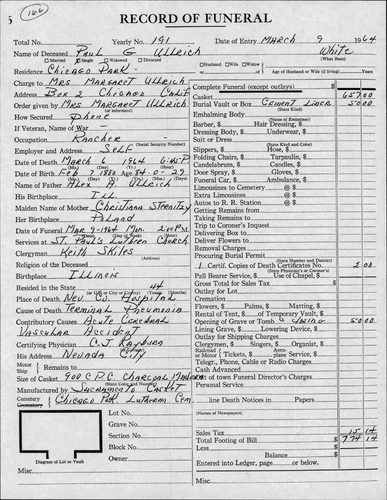 5
166
RECORD OF FUNERAL
Total No. Yearly No. 191 Date of Entry MARCH 9 1964
Name of Deceased PAUL G ULLRICH White
(What Race)
Married Single Widowed Divorced Husband Wife Widow
Residence CHICAGO PARK - of Age of Husband or Wife (if living) Years
Charge to MRS MARGARET ULLRICH
Address BOX 2 CHICAGO CALIF
Order given by MRS MARGARET ULLRICH
How Secured Phone
If Veteran, Name of War
Occupation RANCHER
(Social Security Number)
Employer and Address SELF
Date of Death MARCH 6 1964 6:45 P
Date of Birth FEB 7 1880 Age 84-0-29
Name of Father ALEX A. ULLRICH
His Birthplace ILL
Maiden Name of Mother CHRISTIANA
Her Birthplace POLAND
Date of Funeral MAR 9-1964 Mon. 2:00 PM
Services at ST. PAUL'S LUTHERN CHURCH
Clergyman KEITH SKILES
(Address)
Religion of the Deceased
Birthplace ILLINOIS
Resided in the State 44
Place of Death NEV. CO. HOSPITAL
Cause of Death TERMINAL PNEUMONIA
Contributory Causes ACUTE CEREBRAL
VASCULAR ACCIDENT
Certifying Physician C.J.
His Address NEVADA CITY
Motor
Ship Remains to
Size of Casket 900 C.P.C. CHARCOAL
Manufactured by SACRAMENTO CASKET
Cemetery
Crematory CHICAGO PARK LUTHERAN CEM.
Lot No.
Grave No.
Section No.
Block No.
Owner
Diagram of Lot or Vault
Misc.
Complete Funeral (except outlays) $
Casket 657.00
Burial Vault or Box CEMENT LINER 50.00
(State Kind)
Embalming Body
(Name of Embalmer)
Barber, $ Hair Dressing, $
Dressing Body, $ Underwear, $
Suit or Dress
(State Kind and Color)
Slippers, $ Hose, $
Folding Chairs, $ Tarpaulin, $
Candelabrum, $ Candles, $
Door Spray, $ Gloves, $
Funeral Car, $ Ambulance, $
Limousines to Cemetery @ $
Extra Limousines @ $
Autos to R. R. Station @ $
Getting Remains from
Taking Remains to
Trip to Coroner's Inquest
Delivering Box to
Deliver Flowers to
Removal Charges
Procuring Burial Permit
(State Number and District)
1 Certif. Copies of Death Certificates No. 2 00
(State Physician's or Coroner's)
Pall Bearer Service, $ Use of Chapel, $
Gross Total for Sales Tax $
Outlay for Lot
(Name of Cemetery)
Flowers, $ Palms, $ Matting, $
Rental of Tent, $ of Temporary Vault, $
Opening of Grave or Tomb $ 50 00
Lining Grave, $ Lowering Device, $
Outlay for Shipping Charges
Clergymen, $ Singers, $ Organist, $
Railroad
or Motor Tickets, $ Aero-
plane Service, $
Telegr., Phone, Cable or Radio Charges
Cash Advanced
Out of Town Funeral Director's Charges
Personal Service
line Death Notices in Papers
(Names of Newspapers)
Sales Tax 15 14
Total Footing of Bill $ 774 14
Less $
Balance $
Entered into Ledger, page or below.
Misc.